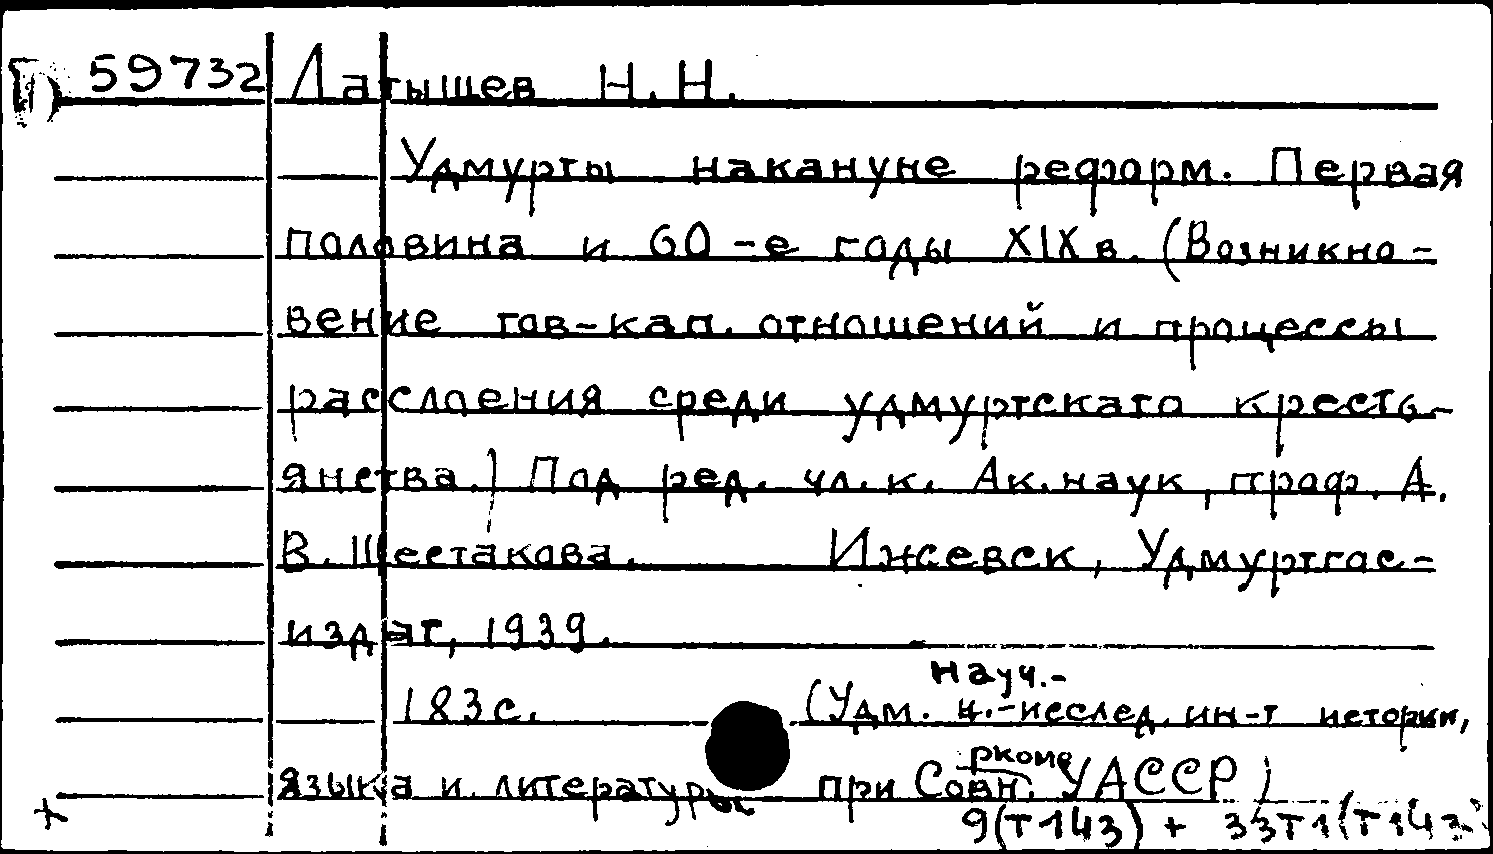 П 59732 Латышев Н. Н.
Удмурты накануне реформ. Первая
половина и 60-е годы XIX в. (Возникно-
вение тов-кап. отношений и процессы
расслоения среди удмуртскаго кресть-
янства.) Под ред. чл. к. Ак. наук, проф. А.
В. Шестакова. Ижевск, Удмуртгос-
издат, 1939.
науч.-
183 с. (Удм. н.-исслед. ин-т истории,
ркоме
языка и литературы при Совн. УАССР)
+ 9(Т143) + 33Т1(Т143)